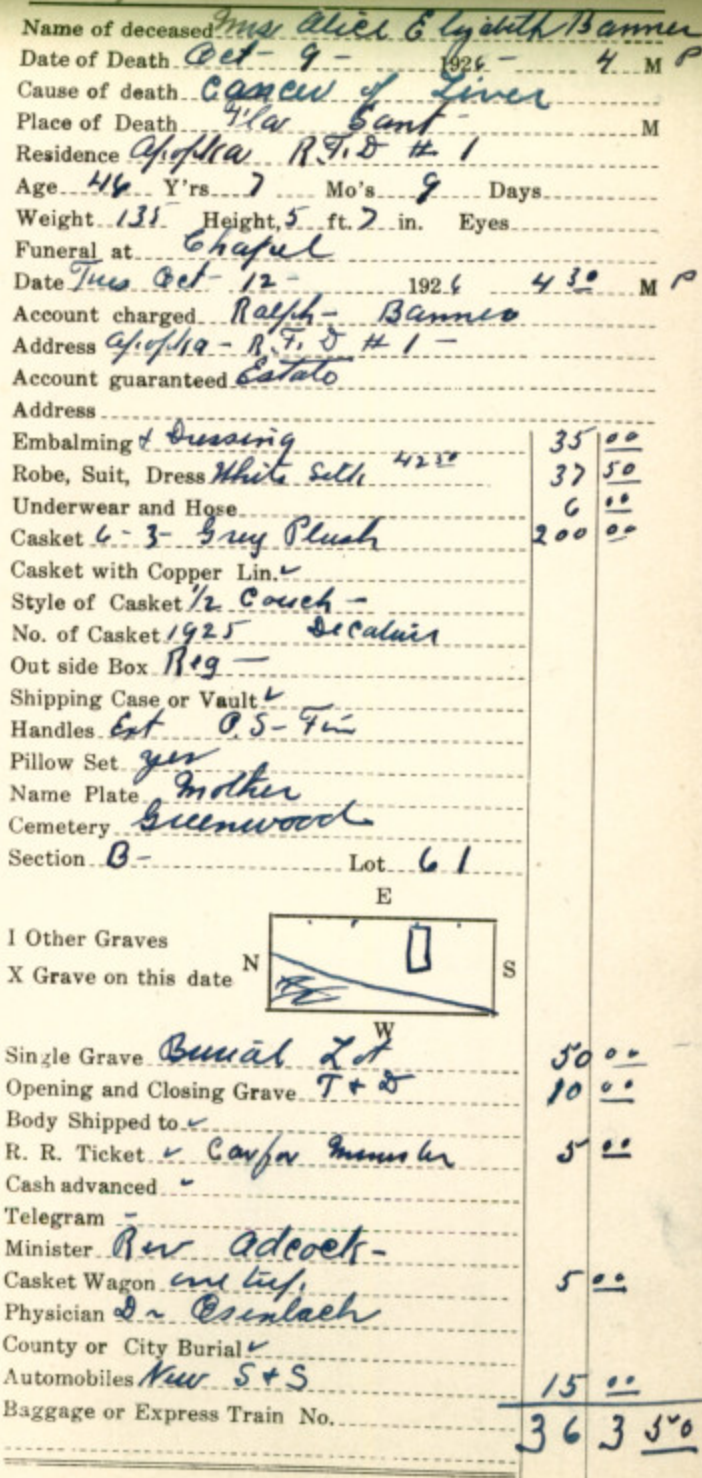 Name of deceased Mrs Alice Elizabeth Banner
Date of Death Oct - 9 - 1926 - 4 M P
Cause of death Cancer of Liver
Place of Death Fla Sant - M
Residence Apopka R.F.D # 1
Age 46 Y'rs 7 Mo's 9 Days
Weight 135 Height, 5 ft. 7 in. Eyes
Funeral at Chapel
Date Tues Oct - 12 - 1926 4 30 M P
Account charged Ralph - Banner
Address Apopka - R.F.D # 1 -
Account guaranteed Estate
Address
Embalming & Dressing 35 00
Robe, Suit, Dress White Silk 42 50 37 50
Underwear and Hose 6 00
Casket 6 - 3 - Grey Plush 200 00
Casket with Copper Lin. ✓
Style of Casket 1/2 Couch -
No. of Casket 1925 Decatur
Out side Box Reg -
Shipping Case or Vault ✓
Handles Ext P.S - Fin
Pillow Set yes
Name Plate Mother
Cemetery Greenwood
Section B - Lot 61
E
I Other Graves
X Grave on this date N S
W
Single Grave Burial Lot 50 00
Opening and Closing Grave T & D 10 00
Body Shipped to ✓
R. R. Ticket ✓ Car for Minister 5 00
Cash advanced -
Telegram -
Minister Rev Adcock -
Casket Wagon one trip. 5 00
Physician Dr
County or City Burial ✓
Automobiles New S & S 15 00
Baggage or Express Train No. 363 50